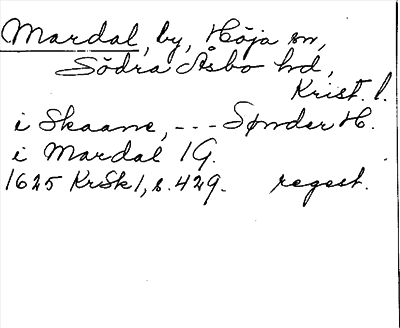 Mardal, by, Höja sn,
Södra Åsbo hd,
Krist. l.
i Skaane, --- Sønder H.
i Mardal 1G.
1625 KrSk 1, s. 429. regest.